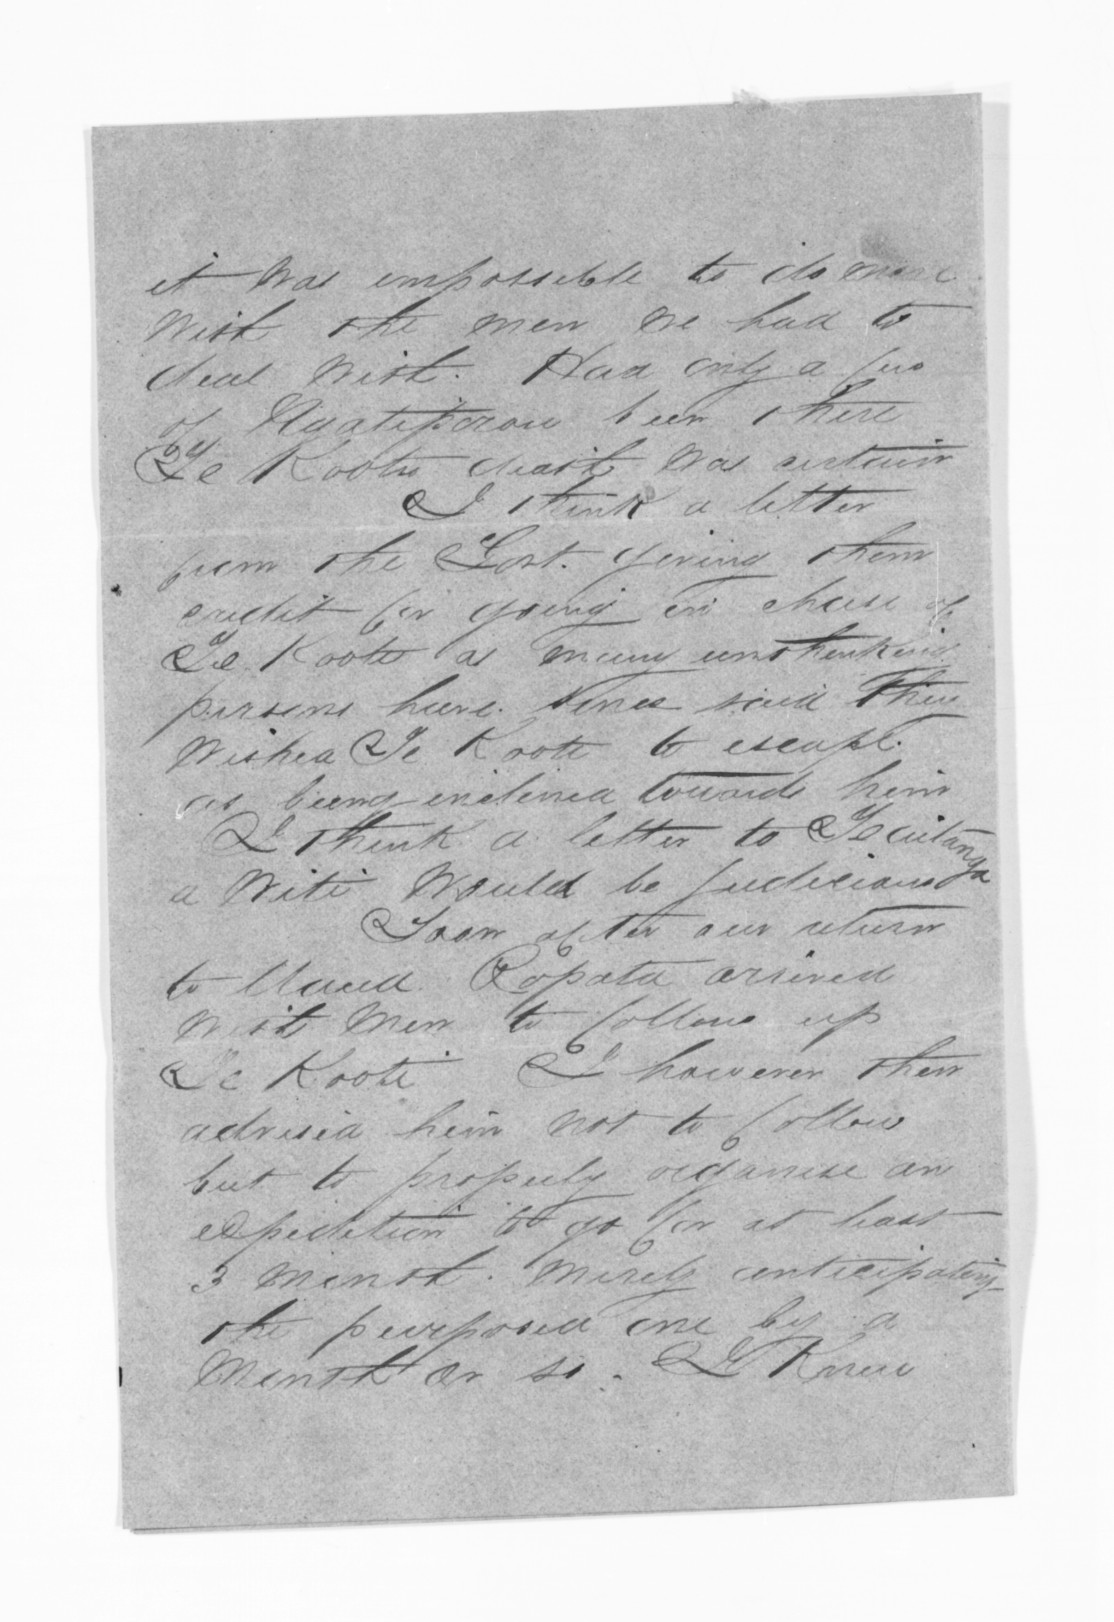 it was impossible to do more
with the men we had to
deal with. Had only a few
of Ngatiporou been there
Te Kootis death was certain
I think a letter
from the Govt. giving them
credit for going in chase of
Te Kooti as many unthinking
persons have since said they
wished Te Kooti to escape.
as being inclined towards him
I think a letter to Tautanga
a Witi would be judicious
Soon after our return
to Maud. Ropata arrived
with men to follow up
Te Kooti I however then
advised him not to follow
but to properly organise an
expedition to go for at least
3 month. merely anticipating
the purposed one by a
month or so. I knew